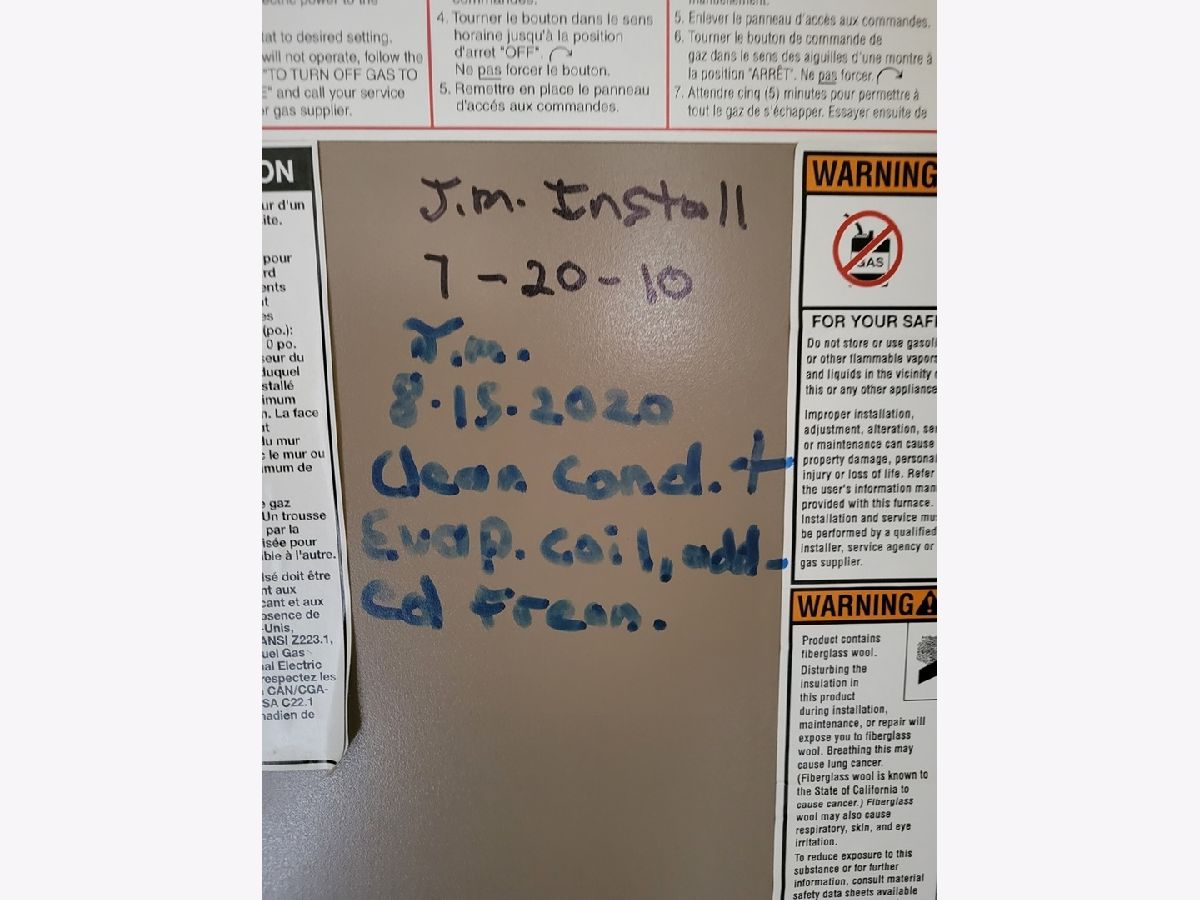 tat to desired setting.
will not operate, follow the
"TO TURN OFF GAS TO
E" and call your service
r gas supplier.
4. Tourner le bouton dans le sens
horaine jusqu'à la position
d'arret "OFF".
Ne pas forcer le bouton.
5. Remettre en place le panneau
d'accés aux commandes.
5. Enlever le panneau d'accès aux commandes.
6. Tourner le bouton de commande de
gaz dans le sens des aiguilles d'une montre à
la position "ARRÊT". Ne pas forcer.
7. Attendre cinq (5) minutes pour permettre à
tout le gaz de s'échapper. Essayer ensuite de
ON
ur d'un
ite.
pour
rd
ents
it
es
(po.):
0 po.
seur du
duquel
stallé
imum
n. La face
nt
du mur
c le mur ou
mum de
gaz
Un trousse
par la
isée pour
ble à l'autre.
lsé doit être
nt aux
cant et aux
bsence de
-Unis,
ANSI Z223.1,
uel Gas
al Electric
respectez les
CAN/CGA-
SA C22.1
nadien de
J.m. Install
7-20-10
J.m.
8.15.2020
Clean Cond. +
Evap. coil, add-
ed Freon.
WARNING
GAS
FOR YOUR SAF
Do not store or use gasoli
or other flammable vapors
and liquids in the vicinity
this or any other appliance
Improper installation,
adjustment, alteration, se
or maintenance can cause
property damage, personal
injury or loss of life. Refer
the user's information man
provided with this furnace.
Installation and service mu
be performed by a qualified
installer, service agency or
gas supplier.
WARNING
Product contains
fiberglass wool.
Disturbing the
insulation in
this product
during installation,
maintenance, or repair will
expose you to fiberglass
wool. Breathing this may
cause lung cancer.
(Fiberglass wool is known to
the State of California to
cause cancer.) Fiberglass
wool may also cause
respiratory, skin, and eye
irritation.
To reduce exposure to this
substance or for further
information, consult material
safety data sheets available